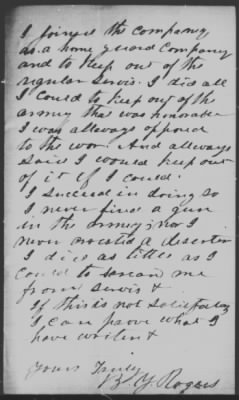 I joined the company
as a home guard Company
and to keep out of the
regular Servis. I did all
I could to keep out of the
army that was honorable
I was allways oposed
to the war. And allways
said I would keep out
of it if I could.
I succeed in doing so
I never fired a gun
in the army; nor I
never arrested a deserter
I did as little as I
could to screan me
from servis &
If this is not satisfactory
I can prove what I
have writen &
yours Truly
B. Y. Rogers